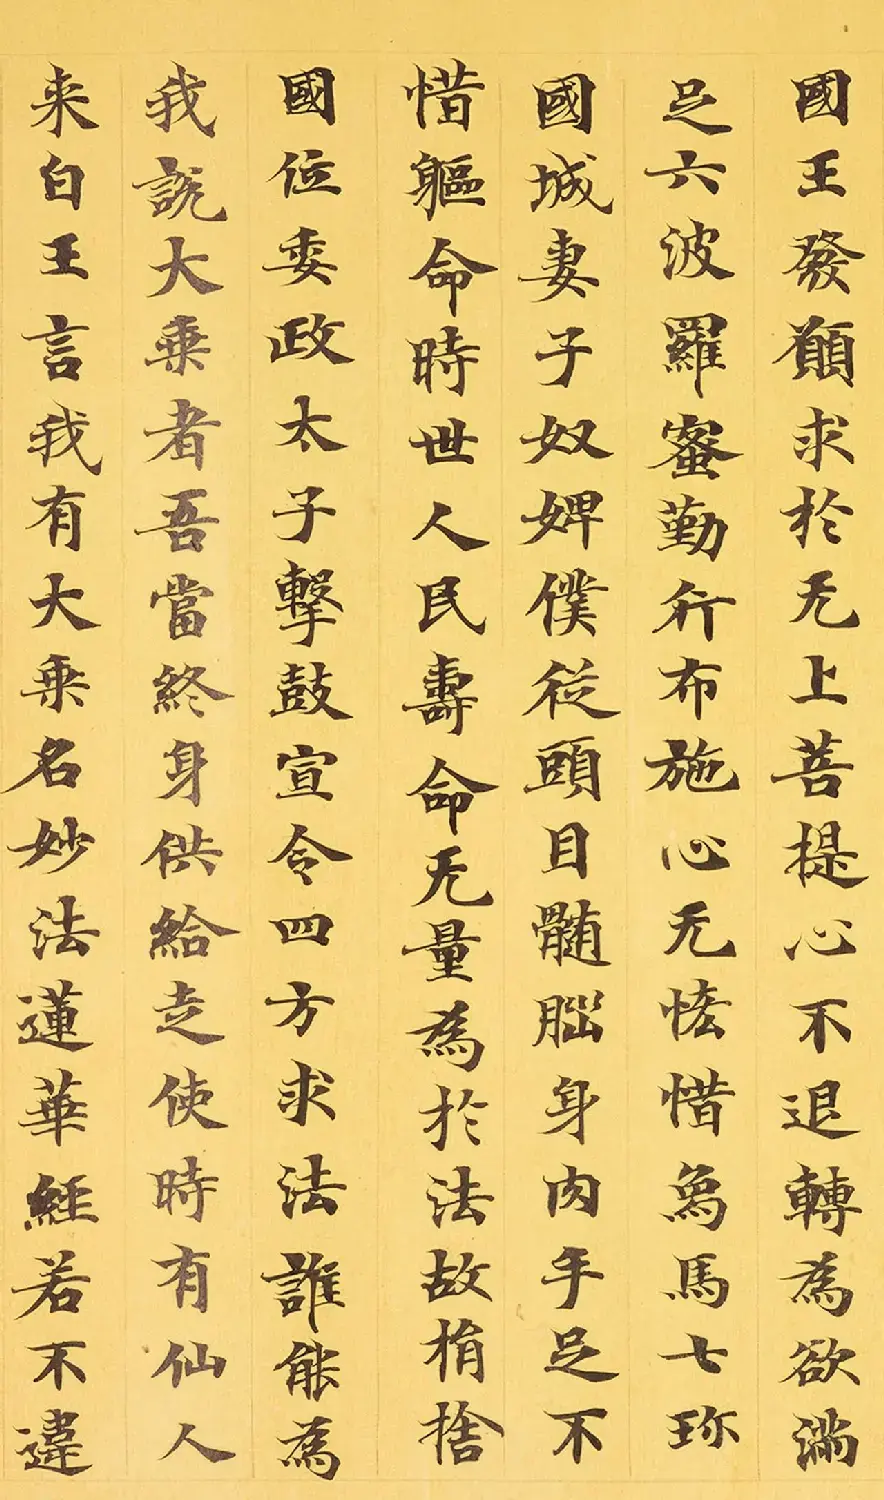 國王發願求於无上菩提心不退轉為欲滿
足六波羅蜜勤行布施心无悋惜象馬七珎
國城妻子奴婢僕從頭目髓腦身肉手足不
惜軀命時世人民壽命无量為於法故捐捨
國位委政太子擊鼓宣令四方求法誰能為
我說大乗者吾當終身供給走使時有仙人
来白王言我有大乗名妙法蓮華經若不違